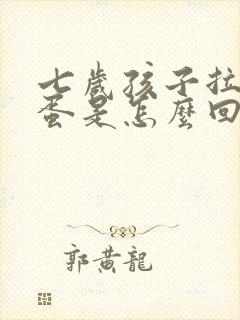 七歲孩子拉
蛋是怎麼回
郭黃龍